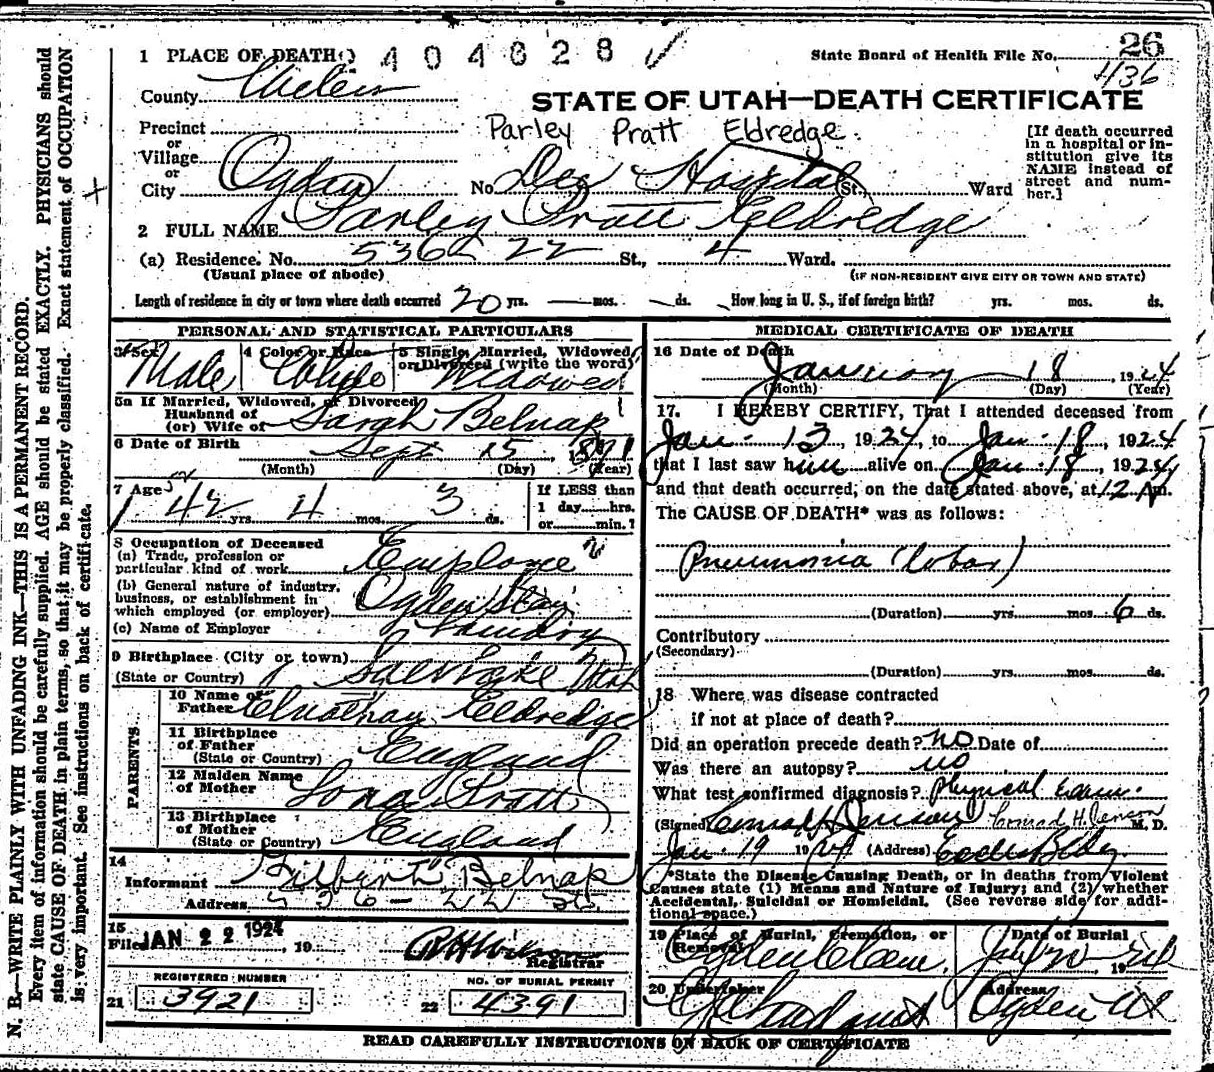 1 PLACE OF DEATH 0 4 0 4 6 2 8 ✓
State Board of Health File No. 26
436
County Weber
STATE OF UTAH—DEATH CERTIFICATE
Precinct
or
Village
or
City Ogden No. Dee Hospital St., Ward
Parley Pratt Eldredge
[If death occurred
in a hospital or in-
stitution give its
NAME instead of
street and num-
ber.]
2 FULL NAME Parley Pratt Eldredge
(a) Residence. No. 536 22 St., 4 Ward.
(Usual place of abode) (IF NON-RESIDENT GIVE CITY OR TOWN AND STATE)
Length of residence in city or town where death occurred 20 yrs. — mos. — ds. How long in U. S., if of foreign birth? yrs. mos. ds.
PERSONAL AND STATISTICAL PARTICULARS
3 Sex Male
4 Color or Race White
5 Single, Married, Widowed
or Divorced (write the word)
Widowed
5a If Married, Widowed, or Divorced
Husband of
(or) Wife of Sarah Belnap
6 Date of Birth Sept 15 1871
(Month) (Day) (Year)
7 Age 52
42 yrs. 4 mos. 3 ds.
If LESS than
1 day......hrs.
or......min.?
8 Occupation of Deceased
(a) Trade, profession or
particular kind of work Employee
(b) General nature of industry,
business, or establishment in
which employed (or employer) Ogden
(c) Name of Employer Laundry
9 Birthplace (City or town) Salt Lake
(State or Country) Utah
PARENTS
10 Name of
Father Elnathan Eldredge
11 Birthplace
of Father England
(State or Country)
12 Maiden Name
of Mother Lona Pratt
13 Birthplace
of Mother England
(State or Country)
14
Informant Gilbert Belnap
Address 536 – 22 St.
15
Filed JAN 22 1924, 19
Registrar
REGISTERED NUMBER
21 3921
NO. OF BURIAL PERMIT
22 4391
MEDICAL CERTIFICATE OF DEATH
16 Date of Death
January 18, 1924
(Month) (Day) (Year)
17. I HEREBY CERTIFY, That I attended deceased from
Jan. 13, 1924, to Jan. 18, 1924
that I last saw him alive on Jan. 18, 1924
and that death occurred, on the date stated above, at 12 m.
The CAUSE OF DEATH* was as follows:
Pneumonia (Lobar)
(Duration) yrs. mos. 6 ds.
Contributory
(Secondary)
(Duration) yrs. mos. ds.
18 Where was disease contracted
if not at place of death?
Did an operation precede death? no Date of
Was there an autopsy? no
What test confirmed diagnosis? Physical Exam.
(Signed) Conrad H Jenson Conrad H. Jenson M. D.
Jan. 19 1924 (Address) Eccles Bldg.
*State the Disease Causing Death, or in deaths from Violent
Causes state (1) Means and Nature of Injury; and (2) whether
Accidental, Suicidal or Homicidal. (See reverse side for addi-
tional space.)
19 Place of Burial, Cremation, or
Removal
Date of Burial
Ogden Cem. Jan 20, 1924
20 Undertaker Address
Ogden Ut
READ CAREFULLY INSTRUCTIONS ON BACK OF CERTIFICATE
N. B.—WRITE PLAINLY WITH UNFADING INK—THIS IS A PERMANENT RECORD.
Every item of information should be carefully supplied. AGE should be stated EXACTLY. PHYSICIANS should
state CAUSE OF DEATH in plain terms, so that it may be properly classified. Exact statement of OCCUPATION
is very important. See instructions on back of certificate.